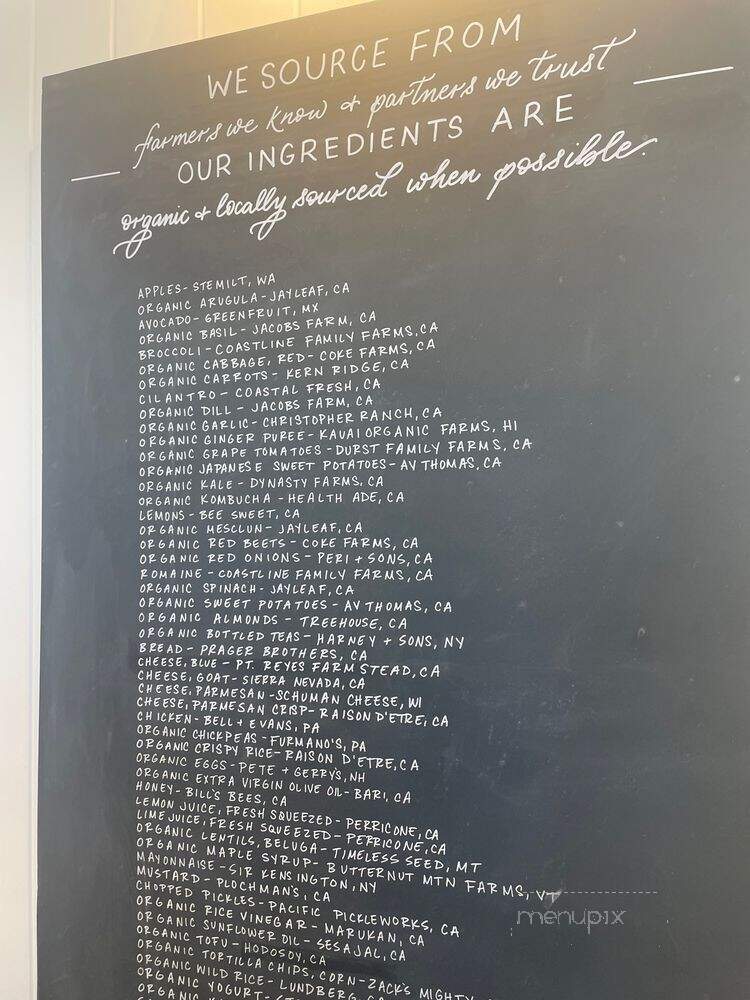 WE SOURCE FROM
farmers we know + partners we trust
OUR INGREDIENTS ARE
organic + locally sourced when possible.
APPLES - STEMILT, WA
ORGANIC ARUGULA - JAYLEAF, CA
AVOCADO - GREENFRUIT, MX
ORGANIC BASIL - JACOBS FARM, CA
BROCCOLI - COASTLINE FAMILY FARMS, CA
ORGANIC CABBAGE, RED - COKE FARMS, CA
ORGANIC CARROTS - KERN RIDGE, CA
CILANTRO - COASTAL FRESH, CA
ORGANIC DILL - JACOBS FARM, CA
ORGANIC GARLIC - CHRISTOPHER RANCH, CA
ORGANIC GINGER PUREE - KAUAI ORGANIC FARMS, HI
ORGANIC GRAPE TOMATOES - DURST FAMILY FARMS, CA
ORGANIC JAPANESE SWEET POTATOES - AV THOMAS, CA
ORGANIC KALE - DYNASTY FARMS, CA
ORGANIC KOMBUCHA - HEALTH ADE, CA
LEMONS - BEE SWEET, CA
ORGANIC MESCLUN - JAYLEAF, CA
ORGANIC RED BEETS - COKE FARMS, CA
ORGANIC RED ONIONS - PERI + SONS, CA
ROMAINE - COASTLINE FAMILY FARMS, CA
ORGANIC SPINACH - JAYLEAF, CA
ORGANIC SWEET POTATOES - AV THOMAS, CA
ORGANIC ALMONDS - TREEHOUSE, CA
ORGANIC BOTTLED TEAS - HARNEY + SONS, NY
BREAD - PRAGER BROTHERS, CA
CHEESE, BLUE - PT. REYES FARM STEAD, CA
CHEESE, GOAT - SIERRA NEVADA, CA
CHEESE, PARMESAN - SCHUMAN CHEESE, WI
CHEESE, PARMESAN CRISP - RAISON D'ETRE, CA
CHICKEN - BELL + EVANS, PA
ORGANIC CHICKPEAS - FURMANO'S, PA
ORGANIC CRISPY RICE - RAISON D'ETRE, CA
ORGANIC EGGS - PETE + GERRY'S, NH
ORGANIC EXTRA VIRGIN OLIVE OIL - BARI, CA
HONEY - BILL'S BEES, CA
LEMON JUICE, FRESH SQUEEZED - PERRICONE, CA
LIME JUICE, FRESH SQUEEZED - PERRICONE, CA
ORGANIC LENTILS, BELUGA - TIMELESS SEED, MT
ORGANIC MAPLE SYRUP - BUTTERNUT MTN FARMS, VT
MAYONNAISE - SIR KENSINGTON, NY
MUSTARD - PLOCHMAN'S, CA
CHOPPED PICKLES - PACIFIC PICKLEWORKS, CA
ORGANIC RICE VINEGAR - MARUKAN, CA
ORGANIC SUNFLOWER OIL - SESAJAL, CA
ORGANIC TOFU - HODOSOY, CA
ORGANIC TORTILLA CHIPS, CORN - ZACK'S MIGHTY
ORGANIC WILD RICE - LUNDBERG
ORGANIC YOGURT
menupix